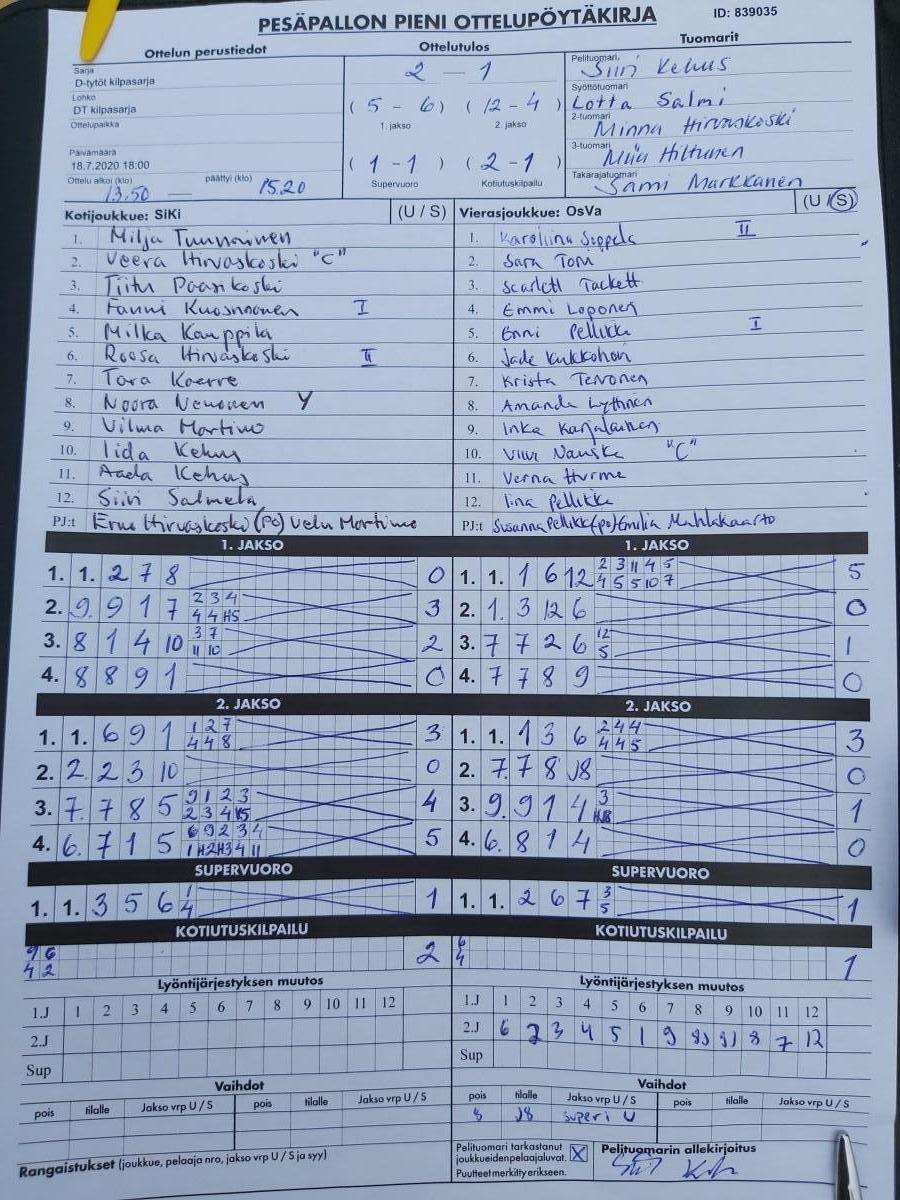 PESÄPALLON PIENI OTTELUPÖYTÄKIRJA
ID: 839035
Ottelun perustiedot
Sarja
D-tytöt kilpasarja
Lohko
DT kilpasarja
Ottelupaikka
Päivämäärä
18.7.2020 18:00
Ottelu alkoi (klo) 13.50 — päättyi (klo) 15.20
Ottelutulos
2 — 1
(5 - 6) (12 - 4)
1. jakso 2. jakso
(1 - 1) (2 - 1)
Supervuoro Kotiutuskilpailu
Tuomarit
Pelituomari, Siiri Kehus
Syöttötuomari
Lotta Salmi
2-tuomari
Minna Hirvaskoski
3-tuomari
Miia Hiltunen
Takarajatuomari
Sami Markkanen
Kotijoukkue: SiKi (U / S)
1. Milja Tunnainen
2. Veera Hirvaskoski "C"
3. Tiitu Paasikoski
4. Fanni Kuosmanen I
5. Milka Kauppila
6. Roosa Hirvaskoski II
7. Tara Kaerre
8. Noora Nenonen Y
9. Vilma Martimo
10. Iida Kehus
11. Aada Kehas
12. Siiri Salmela
PJ:t Erno Hirvaskoski (PO) Velu Martimo
Vierasjoukkue: OsVa (U / S)
1. Karoliina Seppälä II
2. Sara Toni
3. Scarlett Tackett
4. Emmi Loponen
5. Enni Pellikka I
6. Jade Kukkohovi
7. Krista Tervonen
8. Amanda Lyhtinen
9. Inka Karjalainen
10. Viivi "C"
11. Verna Hurme
12. Iina Pellikka
PJ:t Susanna Pellikk(po) Emilia
1. JAKSO
1. 1. 2 7 8 0
2. 9. 9 1 7 2 3 4 3
4 4 H5
3. 8 1 4 10 3 7 2
11 10
4. 8 8 9 1 0
1. JAKSO
1. 1. 1 6 12 2 3 11 4 5 5
4 5 5 10 7
2. 1. 3 12 6 0
3. 7 7 2 6 12 1
5
4. 7 7 8 9 0
2. JAKSO
1. 1. 6 9 1 1 2 7 3
4 4 8
2. 2. 2 3 10 0
3. 7. 7 8 5 9 1 2 3 4
2 3 4
4. 6. 7 1 5 6 9 2 3 4 5
1 H2 H3 4 11
2. JAKSO
1. 1. 1 3 6 2 4 4 3
4 4 5
2. 7. 7 8 J8 0
3. 9. 9 1 4 3 1
4. 6. 8 1 4 0
SUPERVUORO
1. 1. 3 5 6 1 1
4
SUPERVUORO
1. 1. 2 6 7 3 1
5
KOTIUTUSKILPAILU
9 6 2
4 2
KOTIUTUSKILPAILU
6 1
4
Lyöntijärjestyksen muutos
1.J 1 2 3 4 5 6 7 8 9 10 11 12
2.J
Sup
Lyöntijärjestyksen muutos
1.J 1 2 3 4 5 6 7 8 9 10 11 12
2.J 6 2 3 4 5 1 9 8 7 12
Sup
Vaihdot
pois tilalle Jakso vrp U / S pois tilalle Jakso vrp U / S
Vaihdot
pois tilalle Jakso vrp U / S pois tilalle Jakso vrp U / S
8 J8 superi U
Rangaistukset (joukkue, pelaaja nro, jakso vrp U / S ja syy)
Pelituomari tarkastanut
joukkueiden pelaajaluvat. X
Puutteet merkitty erikseen.
Pelituomarin allekirjoitus